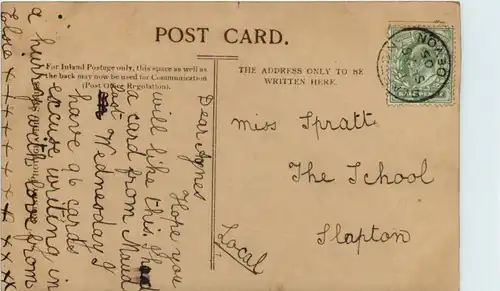 POST CARD.
For Inland Postage only, this space as well as
the back may now be used for Communication
(Post Office Regulation).
THE ADDRESS ONLY TO BE
WRITTEN HERE.
Dear Agnes
Hope you
will like this I had
a card from Maud
last Wednesday I
have 96 cards
excuse writing in
a hurry with love from
Elsie x + + + + + x x x x
Miss Spratt
The School
Slapton
Local
DEVON